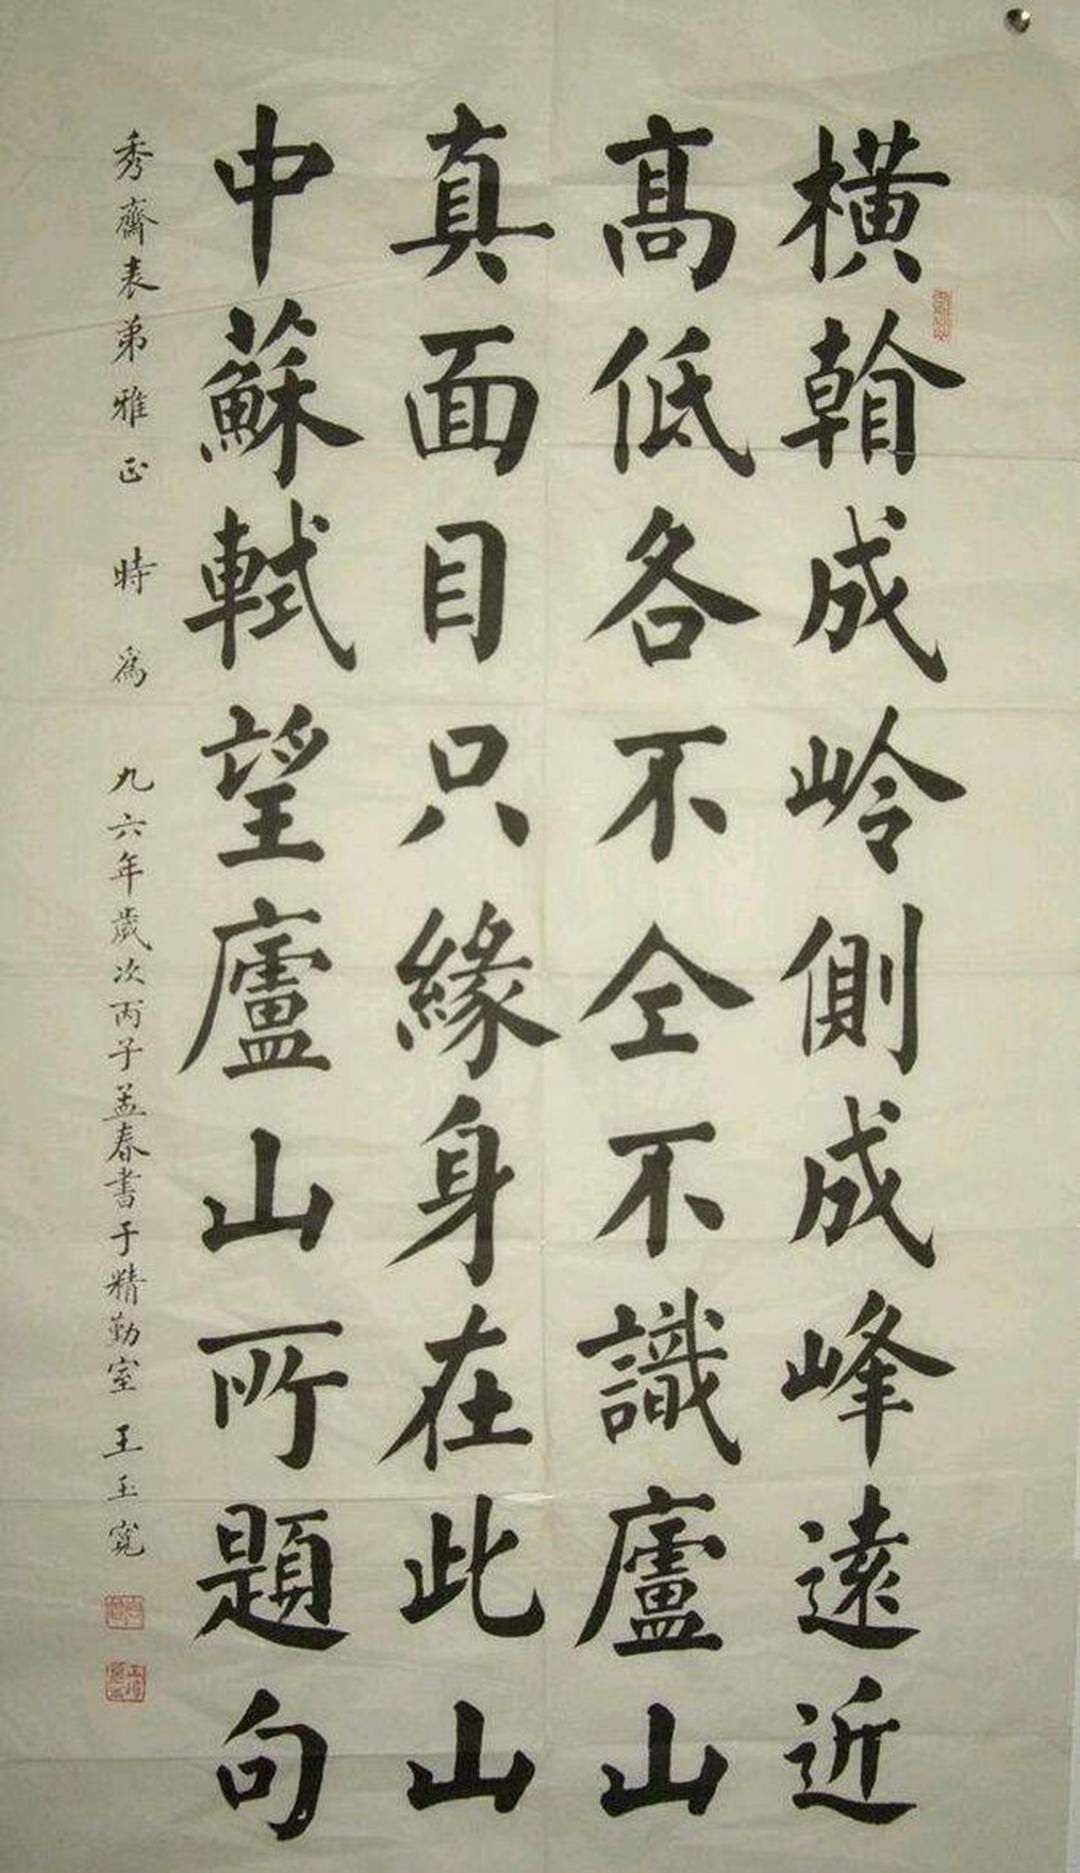 橫䪺成岭側成峰遠近
髙低各不仝不識廬山
真面目只緣身在此山
中蘇軾望廬山所題句
秀齋表弟雅正 時為 九六年歲次丙子孟春書于精勤室 王玉寬